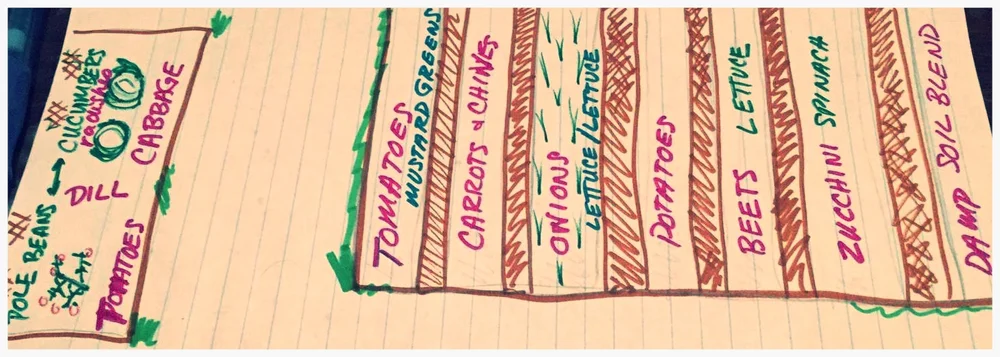 POLE BEANS
CUCUMBERS
radishes
DILL
CABBAGE
TOMATOES
TOMATOES
MUSTARD GREENS
CARROTS & CHIVES
ONIONS
LETTUCE/LETTUCE
POTATOES
BEETS LETTUCE
ZUCCHINI SPINACH
DAMP SOIL BLEND